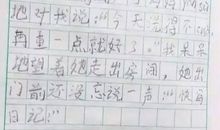 她对我说:“今天觉得不
再重一点就好了。”我呆呆
地望着她走出房间,她出
门前还没忘说一声:“快写
日记!”